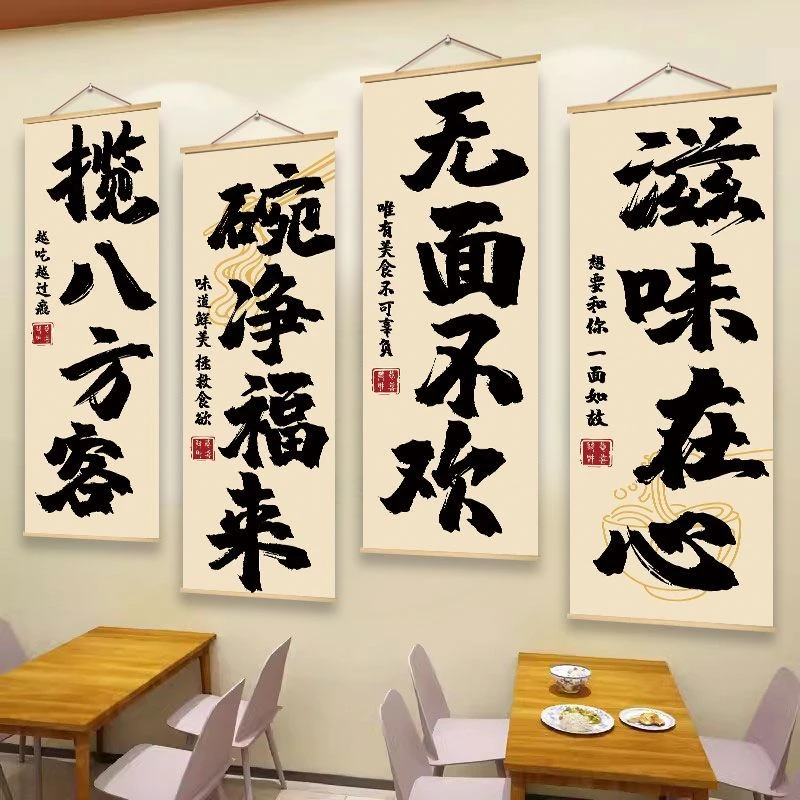 揽八方客
越吃越过瘾
碗净福来
味道鲜美 拯救食欲
无面不欢
唯有美食不可辜负
滋味在心
想要和你 一面如故